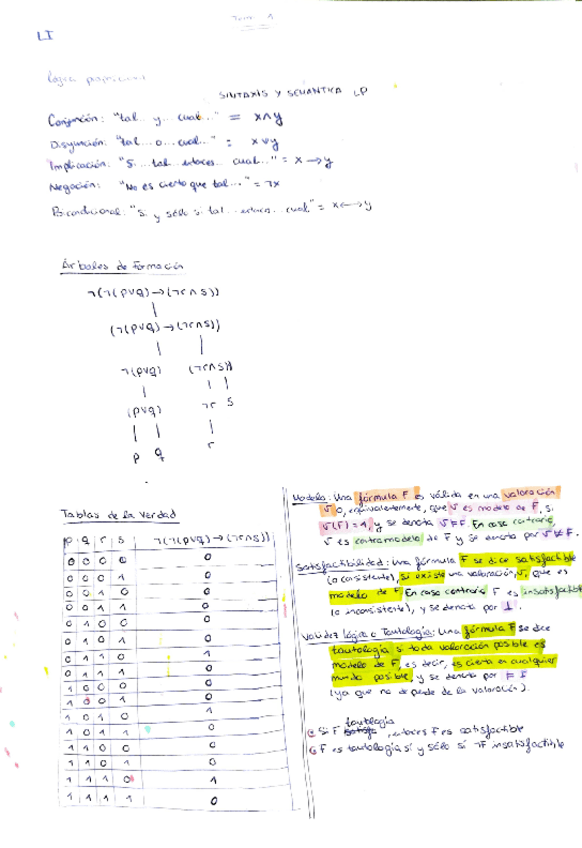 LI
Tema 1
lógica proposicional
SINTAXIS Y SEMÁNTICA LP
Conjunción: "tal... y... cual..." = x∧y
Disyunción: "tal... o... cual..." = x∨y
Implicación: "Si... tal... entonces... cual..." = x→y
Negación: "No es cierto que tal..." = ¬x
Bicondicional: "Si y sólo si tal... entonces... cual" = x↔y
Árboles de Formación
¬(¬(p∨q)→(¬r∧s))
(¬(p∨q)→(¬r∧s))
¬(p∨q) (¬r∧s)
(p∨q) ¬r s
p q r
Tablas de la verdad
p q r s ¬(¬(p∨q)→(¬r∧s))
0 0 0 0 0
0 0 0 1 0
0 0 1 0 0
0 0 1 1 0
0 1 0 0 0
0 1 0 1 0
0 1 1 0 1
0 1 1 1 0
1 0 0 0 0
1 0 0 1 0
1 0 1 0 1
1 0 1 1 0
1 1 0 0 0
1 1 0 1 0
1 1 1 0 1
1 1 1 1 0
Modelo: Una fórmula F es válida en una valoración
v o, equivalentemente, que v es modelo de F, si
v(F) = 1, y se denota v⊨F. En caso contrario,
v es contramodelo de F y se denota por v⊭F.
Satisfactibilidad: Una fórmula F se dice satisfactible
(o consistente), si existe una valoración, v, que es
modelo de F. En caso contrario F es insatisfactible
(o inconsistente), y se denota por ⊥.
Validez lógica o Tautología: Una fórmula F se dice
tautología si toda valoración posible es
modelo de F, es decir, es cierta en cualquier
mundo posible, y se denota por ⊨ F
(ya que no depende de la valoración).
tautología
Si F, entonces F es satisfactible
F es tautología si y sólo si ¬F insatisfactible